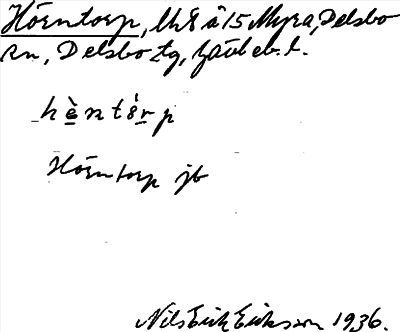 Hörntorp, lh8 å 15 Myra, Delsbo
sn, Delsbo tg, Gävleb. l.
hèntörp
Hörntorp jb
Nils Erik Eriksson 1936.